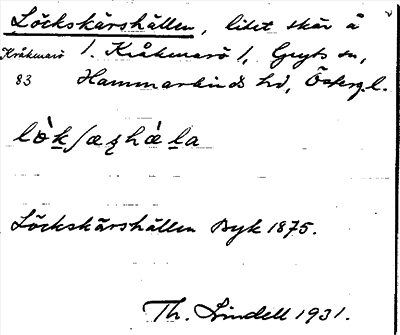 Löckskärshällen, litet skär å
Kråkmarö 1. Kråkmarö 1, Gryts sn,
83 Hammarkinds hd, Östergl.
lò̀k∫æʂhæ̀la
Löckskärshällen Byk 1875.
Th. Lindell 1931.